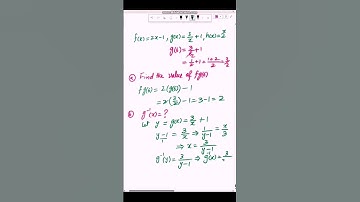 f(x)=2x-1, g(x)=3/x+1, h(x)=x/2
g(6)=3/6+1
=1/2+1=1+2/2=3/2
Find the value of fg(6)
fg(6)=2(g(6))-1
=2(3/2)-1=3-1=2
g⁻¹(x)=?
let y=g(x)=3/x+1
y-1/1=3/x⇒1/y-1=x/3
⇒x=3/y-1
g⁻¹(y)=3/y-1⇒g⁻¹(x)=3/